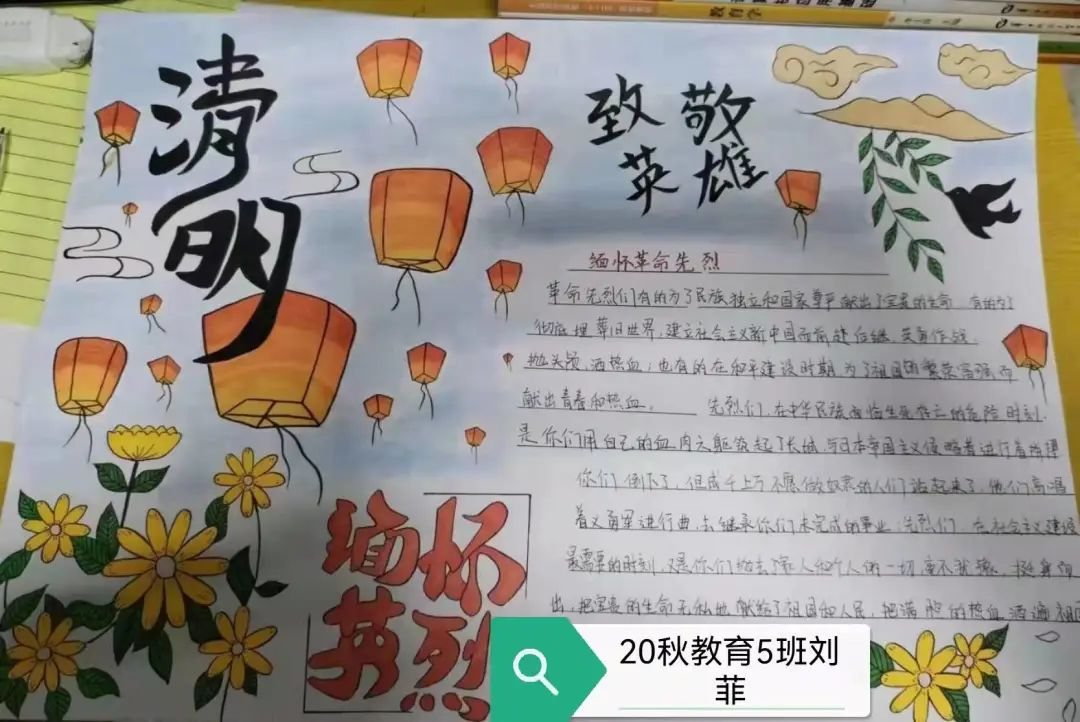 教育学
清明
致敬
英雄
缅怀革命先烈
革命先烈们有的为了民族独立和国家尊严献出了宝贵的生命，有的为了
彻底埋葬旧世界，建立社会主义新中国而前赴后继，英勇作战，
抛头颅，洒热血；也有的在和平建设时期为了祖国的繁荣富强而
献出青春和热血。 先烈们，在中华民族面临生死存亡的危险时刻，
是你们用自己的血肉之躯筑起了长城，与日本帝国主义侵略者进行着
你们倒下了，但成千上万不愿做奴隶的人们站起来了，他们高唱
着义勇军进行曲，去继承你们未完成的事业；先烈们，在社会主义建设
最需要的时刻，又是你们抛去了家人和个人的一切，毫不犹豫，挺身而
出，把宝贵的生命无私地献给了祖国和人民，把满腔的热血洒遍祖国
缅怀
英烈
20秋教育5班刘
菲